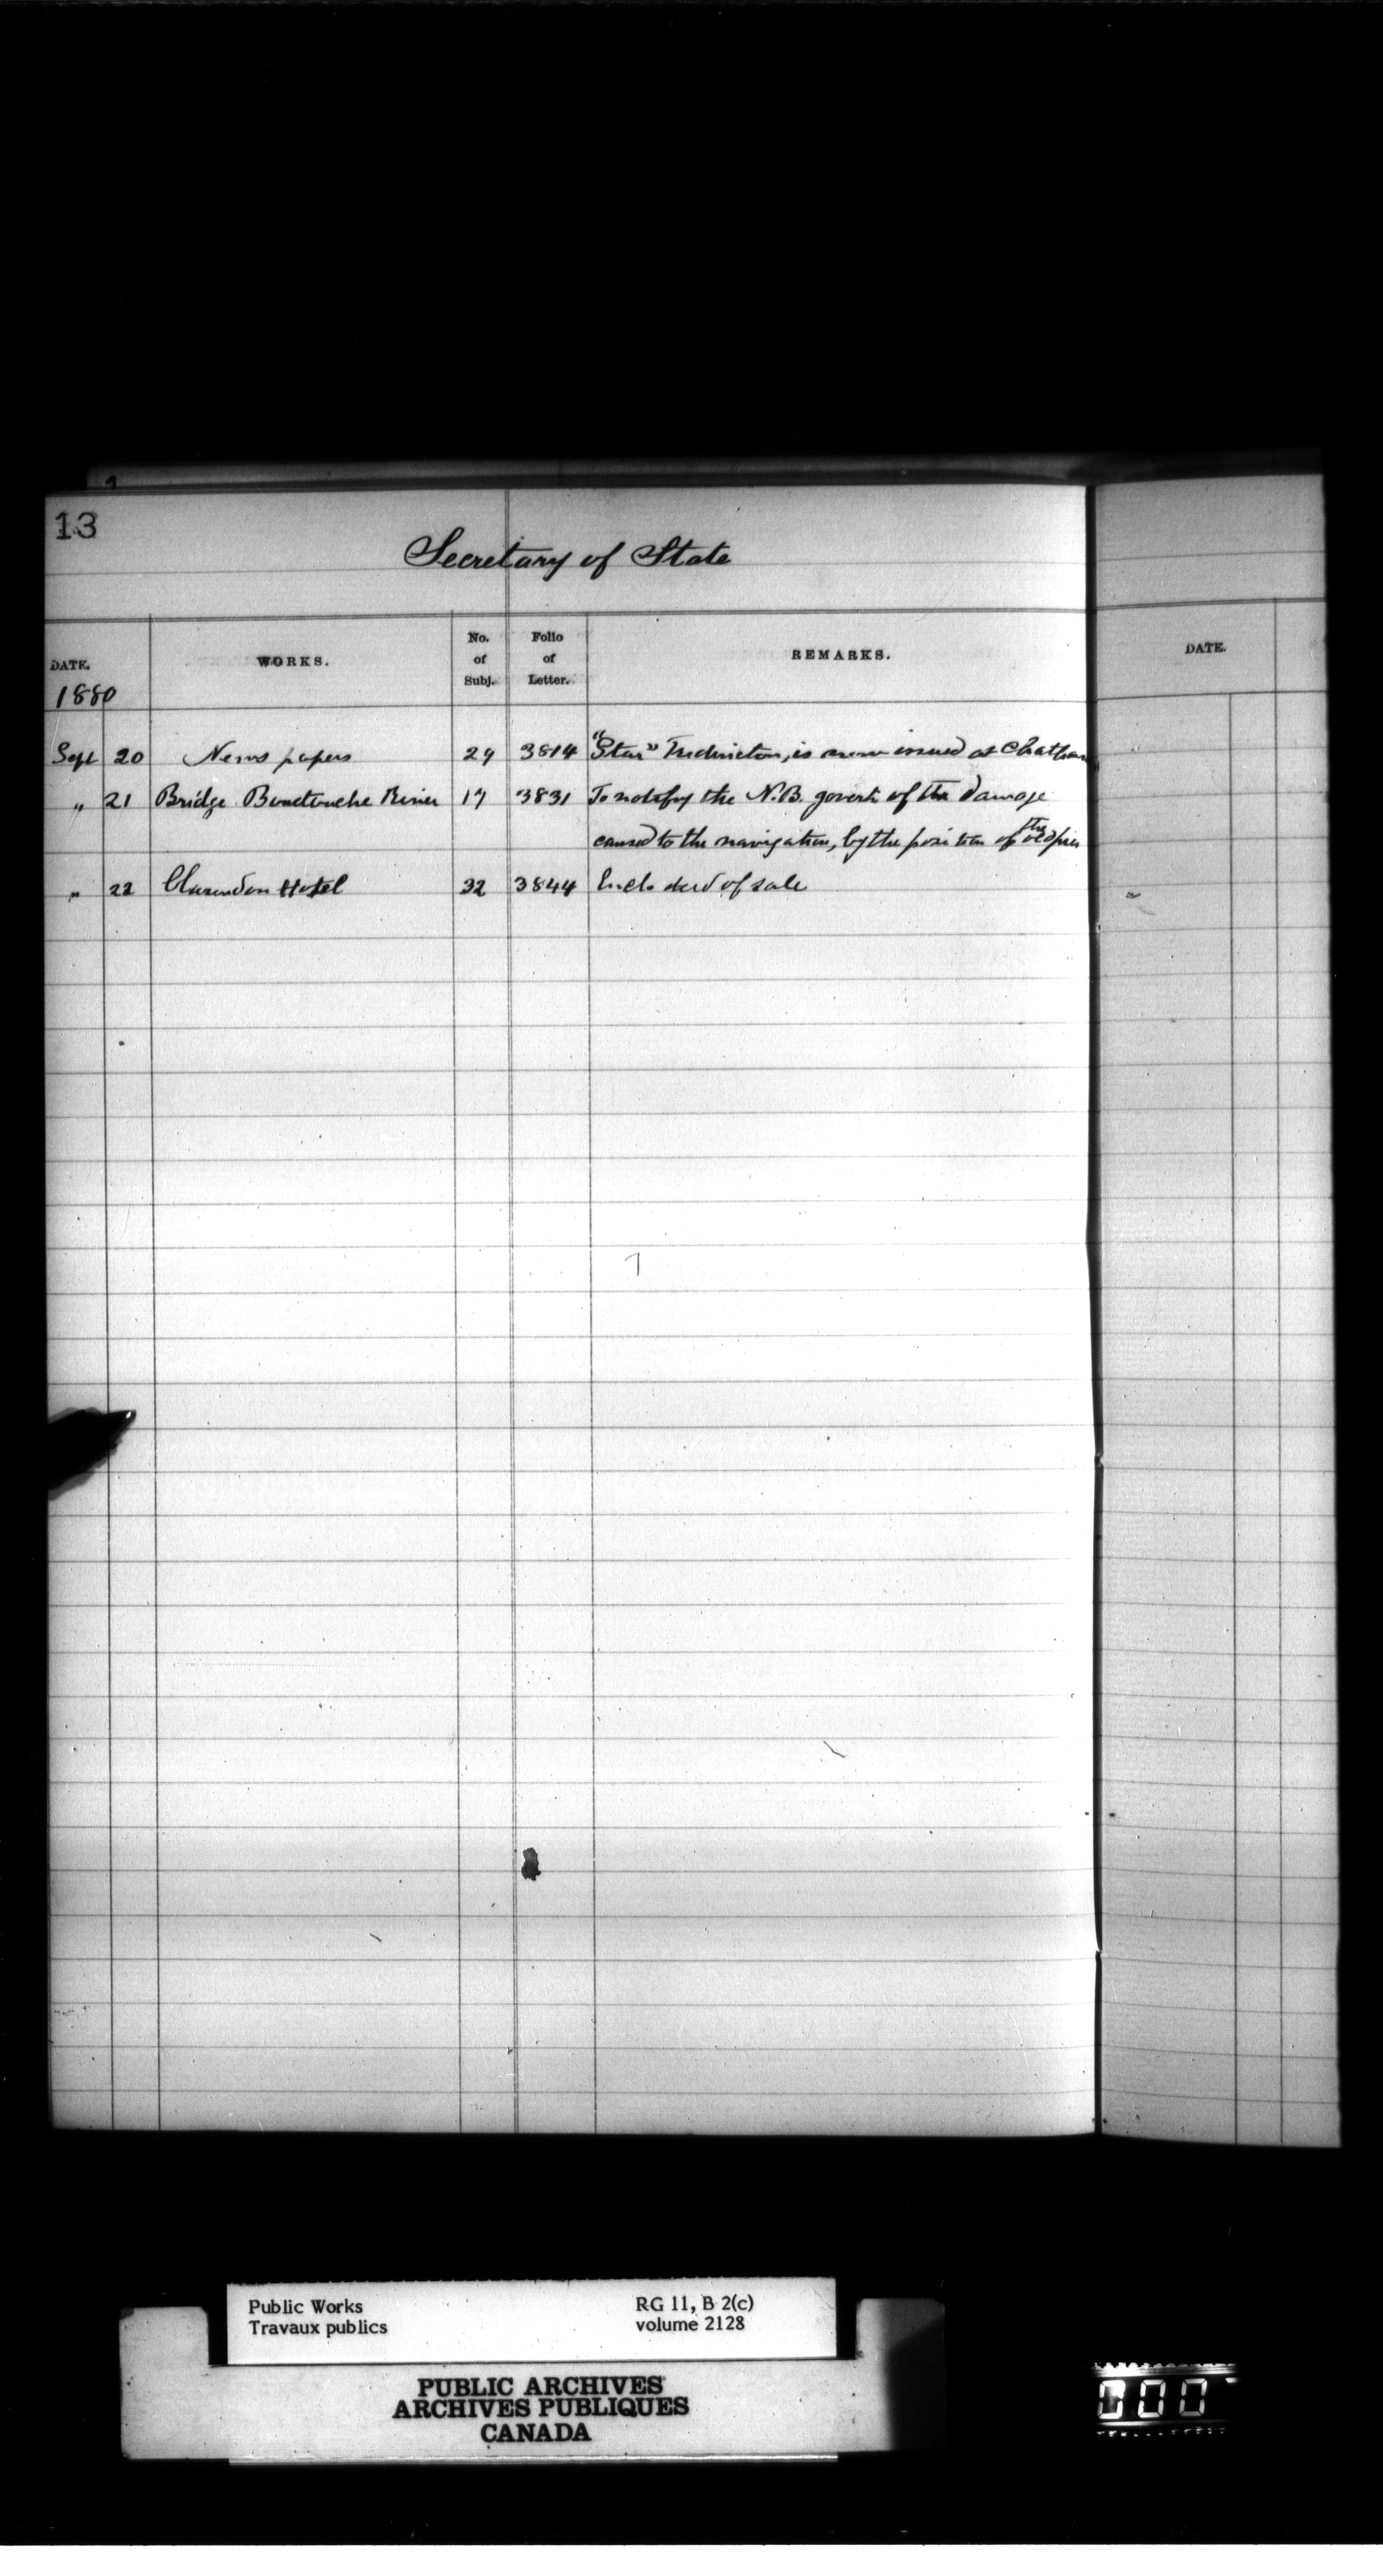 13
Secretary of State
DATE. WORKS. No. of Subj. Folio of Letter. REMARKS. DATE.
1880
Sept 20 News papers 29 3814 "Star" Fredericton, is now issued at Chatham
" 21 Bridge Bouctouche River 17 3831 To notify the N.B. govert of the damage
caused to the navigation, by the position of the old pier
" 22 Clarendon Hotel 32 3844 Encls deed of sale
Public Works RG 11, B 2(c)
Travaux publics volume 2128
PUBLIC ARCHIVES
ARCHIVES PUBLIQUES
CANADA